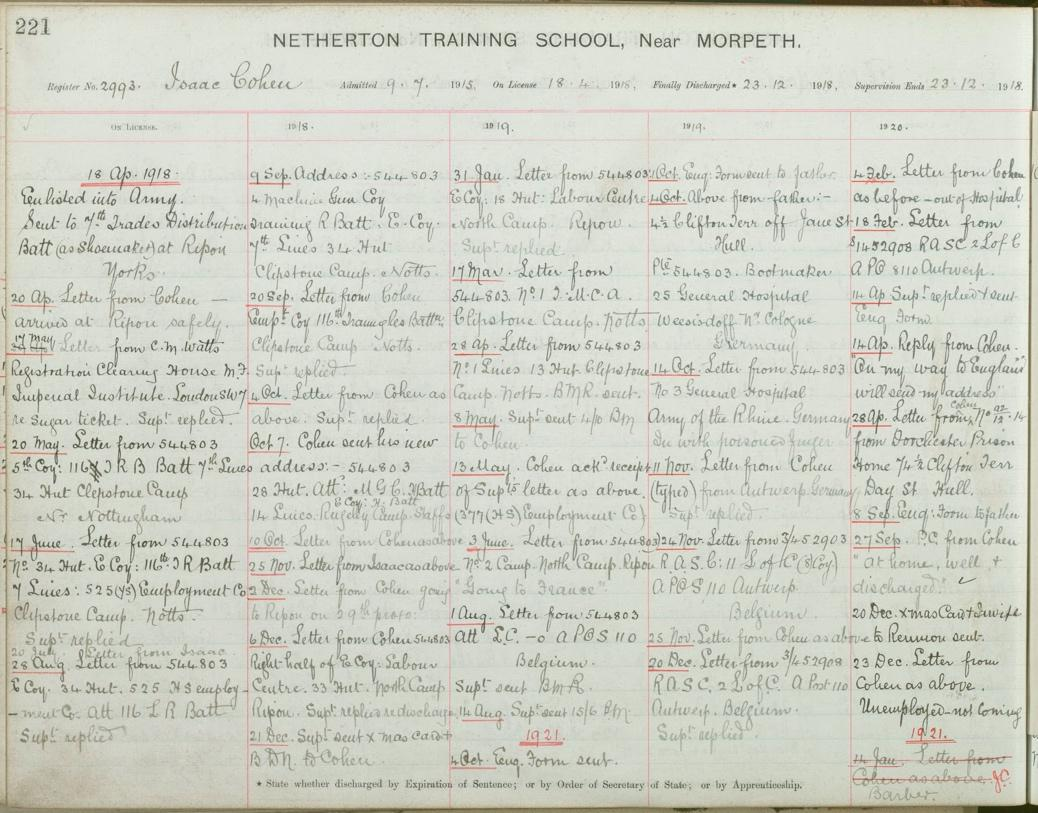 221
NETHERTON TRAINING SCHOOL, Near MORPETH.
Register No. 2993. Isaac Cohen Admitted 9 . 7 . 1915, On License 18 . 4 . 1918, Finally Discharged* 23 . 12 . 1918, Supervision Ends 23 . 12 . 1918.
On License.
18 Ap. 1918.
Enlisted into Army.
Sent to 7th Trades Distribution
Batt (as Shoemaker) at Ripon
Yorks.
20 Ap. Letter from Cohen —
arrived at Ripon safely.
17 May Letter from C. M. Watts
Registration Clearing House M.F.
Imperial Institute. London SW7
re Sugar ticket. Supt. replied.
20 May. Letter from 544803
5th Coy: 116 T R B Batt 7th Lines
34 Hut Clepstone Camp
Nr Nottingham
17 June. Letter from 544803
No. 34 Hut. E Coy: 116th T R Batt
7 Lines: 525 (YS) Employment Co
Clipstone Camp. Notts.
Supt replied
20 July. Letter from Isaac
28 Aug. Letter from 544803
E Coy. 34 Hut. 525 HS employ-
-ment Co. Att 116 L R Batt
Supt replied
1918.
9 Sep. Address :- 544803
4 Machine Gun Coy
Training R Batt. E. Coy.
7th Lines 34 Hut
Clipstone Camp. Notts.
20 Sep. Letter from Cohen
Empt Coy 116th Battn.
Clipstone Camp Notts.
Supt replied.
4 Oct. Letter from Cohen as
above. Supt replied
Oct 7. Cohen sent his new
address :- 544803
28 Hut. Att: M G C. Batt
E Coy: Batt
14 Lines. Rugeley Camp. Staffs
10 Oct. Letter from Cohen as above
25 Nov. Letter from Isaac as above
2 Dec. Letter from Cohen going
to Ripon on 29th
6 Dec. Letter from Cohen 544803
Right half of E Coy: Labour
Centre. 33 Hut. North Camp
Ripon. Supt replied re discharge
21 Dec. Supt sent Xmas card +
B D N. to Cohen.
1919.
31 Jan. Letter from 544803
E Coy: 18 Hut: Labour Centre
North Camp. Ripon.
Supt replied.
17 Mar. Letter from
544803. No. 1 Y. M. C. A.
Clipstone Camp. Notts
28 Ap. Letter from 544803
No. 1 Lines 13 Hut Clipstone
Camp. Notts. BMR. sent.
8 May. Supt sent 4/0 BM
to Cohen.
13 May. Cohen ackd receipt
of Supts letter as above.
(377 (HS) Employment Co)
3 June. Letter from 544803
No. 2 Camp. North Camp. Ripon
"Going to France"
1 Aug. Letter from 544803
Att L.C. -o A P O S 110
Belgium.
Supt sent BMR.
14 Aug. Supt sent 15/6 BM.
1921.
4 Oct. Enq. Form sent.
1919.
1 Oct. Enq: Form sent to father.
4 Oct. Above from father :-
4½ Clifton Terr off Jane St
Hull.
Pte 544803. Bootmaker
25 General Hospital
Weesisdoff Nr Cologne
Germany
14 Oct. Letter from 544803
No 3 General Hospital
Army of the Rhine. Germany
In with poisoned finger
11 Nov. Letter from Cohen
(typed) from Antwerp. Germany
Supt replied.
24 Nov. Letter from 3/452903
R. A. S. C: 11 L of C (S Coy)
A P O S, 110 Antwerp
Belgium.
25 Nov. Letter from Cohen as above
20 Dec. Letter from 3/452908
R A S C. 2 L of C. A Post 110
Antwerp. Belgium.
Supt replied.
1920.
4 Feb. Letter from Cohen
as before - out of Hospital
18 Feb. Letter from
S/1452908 R A SC 2 L of C
A P O 8110 Antwerp.
14 Ap Supt replied + sent
Enq Form.
14 Ap. Reply from Cohen.
"On my way to England
will send my address"
28 Ap. Letter from Cohen,
from Dorchester Prison
Home 74½ Clifton Terr
Day St Hull.
8 Sep. Enq: Form to father
27 Sep. P.C. from Cohen
"at home, well +
discharged."
20 Dec. Xmas Card + Invite
to Reunion sent.
23 Dec. Letter from
Cohen as above.
Unemployed - not coming
1921.
14 Jan. Letter from
Cohen as above. J.C.
Barber.
* State whether discharged by Expiration of Sentence; or by Order of Secretary of State; or by Apprenticeship.